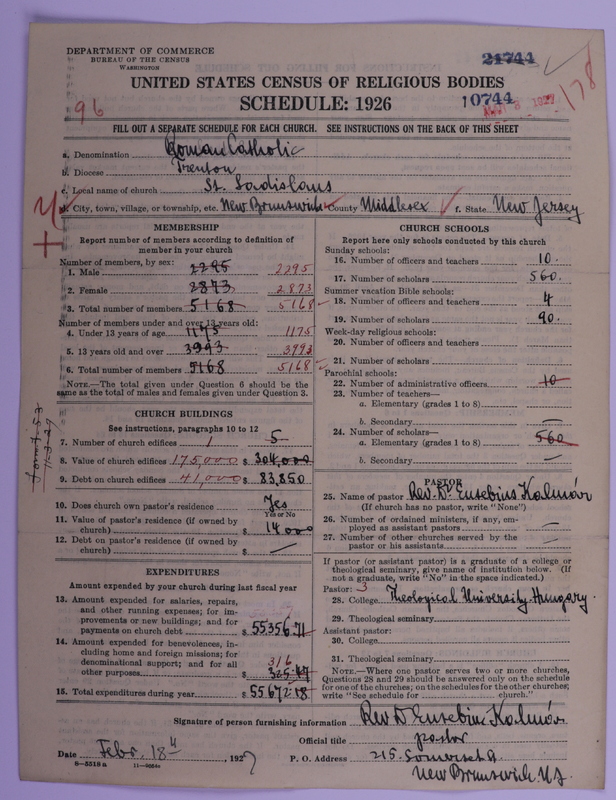 DEPARTMENT OF COMMERCE
BUREAU OF THE CENSUS
WASHINGTON
21744
UNITED STATES CENSUS OF RELIGIOUS BODIES
SCHEDULE: 1926
10744
96
178
FILL OUT A SEPARATE SCHEDULE FOR EACH CHURCH. SEE INSTRUCTIONS ON THE BACK OF THIS SHEET
a. Denomination Roman Catholic
b. Diocese Trenton
c. Local name of church St. Ladislaus
d. City, town, village, or township, etc. New Brunswick County Middlesex f. State New Jersey
MEMBERSHIP
Report number of members according to definition of
member in your church
Number of members, by sex:
1. Male 2295 2295
2. Female 2873 2873
3. Total number of members 5168 5168
Number of members under and over 13 years old:
4. Under 13 years of age 1175 1175
5. 13 years old and over 3993 3993
6. Total number of members 5168 5168
NOTE.—The total given under Question 6 should be the
same as the total of males and females given under Question 3.
CHURCH BUILDINGS
See instructions, paragraphs 10 to 12
7. Number of church edifices 1 5
8. Value of church edifices 175,000 $ 304,000
9. Debt on church edifices 41,000 $ 83,850
10. Does church own pastor's residence? Yes
Yes or No
11. Value of pastor's residence (if owned by
church) $ 14000
12. Debt on pastor's residence (if owned by
church) $ —
EXPENDITURES
Amount expended by your church during last fiscal year
13. Amount expended for salaries, repairs,
and other running expenses; for im-
provements or new buildings; and for
payments on church debt $ 55356.71
14. Amount expended for benevolences, in-
cluding home and foreign missions; for
denominational support; and for all
other purposes 316 $
15. Total expenditures during year $ 55672.18
CHURCH SCHOOLS
Report here only schools conducted by this church
Sunday schools:
16. Number of officers and teachers 10.
17. Number of scholars 560.
Summer vacation Bible schools:
18. Number of officers and teachers 4
19. Number of scholars 90.
Week-day religious schools:
20. Number of officers and teachers
21. Number of scholars
Parochial schools:
22. Number of administrative officers 10
23. Number of teachers—
a. Elementary (grades 1 to 8)
b. Secondary —
24. Number of scholars—
a. Elementary (grades 1 to 8) 560
b. Secondary —
PASTOR
25. Name of pastor Rev. Dr. Eusebius Kalmár
(If church has no pastor, write "None")
26. Number of ordained ministers, if any, em-
ployed as assistant pastors —
27. Number of other churches served by the
pastor or his assistants —
If pastor (or assistant pastor) is a graduate of a college or
theological seminary, give name of institution below. (If
not a graduate, write "No" in the space indicated.)
Pastor: 3
28. College Theological University Hungary.
29. Theological seminary
Assistant pastor:
30. College
31. Theological seminary
NOTE.—Where one pastor serves two or more churches,
Questions 28 and 29 should be answered only on the schedule
for one of the churches; on the schedules for the other churches,
write "See schedule for church."
Signature of person furnishing information Rev Dr Eusebius Kalmár
Official title pastor
Date Febr. 18th, 1927 P. O. Address 215. Somerset St.
8—5518 a
New Brunswick N.J.